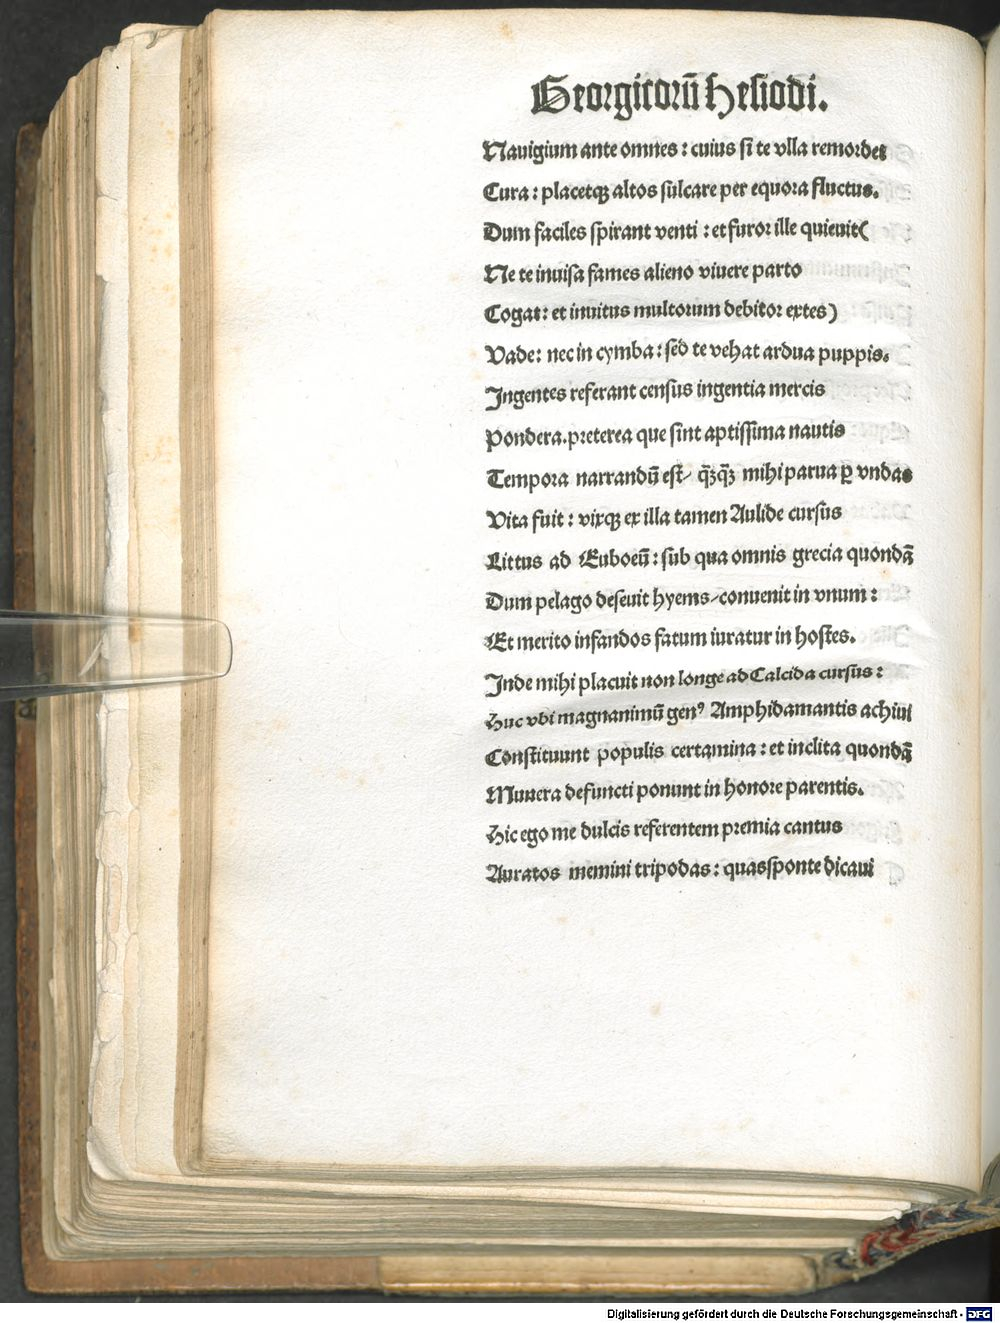 Georgicorū Hesiodi.
Nauigium ante omnes : cuius si te vlla remordet
Cura : placetqꝫ altos sulcare per equora fluctus.
Dum faciles spirant venti : et furor ille quieuit(
Ne te inuisa fames alieno viuere parto
Cogat : et inuitus multorum debitor extes)
Vade : nec in cymba : sed te vehat ardua puppis.
Ingentes referant census ingentia mercis
Pondera. preterea que sint aptissima nautis
Tempora narrandū est/ qꝫ̄qꝫ̄ mihi parua ꝑ vndas
Vita fuit : vixqꝫ ex illa tamen Aulide cursus
Littus ad Euboeū : sub qua omnis grecia quondā
Dum pelago deseuit hyems/ conuenit in vnum :
Et merito infandos fatum iuratur in hostes.
Inde mihi placuit non longe ad Calcida cursus :
Huc vbi magnanimū genꝰ Amphidamantis achiui
Constituunt populis certamina : et inclita quondā
Munera defuncti ponunt in honore parentis.
Hic ego me dulcis referentem premia cantus
Auratos memini tripodas : quas sponte dicaui
Digitalisierung gefördert durch die Deutsche Forschungsgemeinschaft - DFG